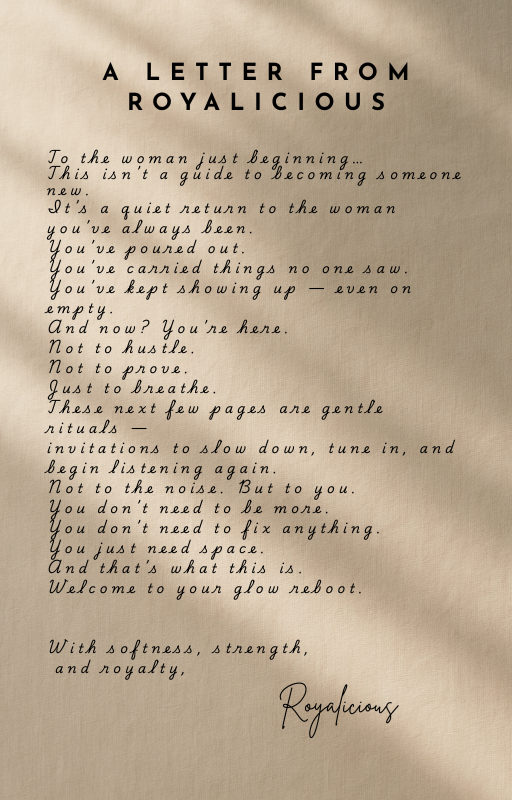 A LETTER FROM
ROYALICIOUS
To the woman just beginning...
This isn't a guide to becoming someone
new.
It's a quiet return to the woman
you've always been.
You've poured out.
You've carried things no one saw.
You've kept showing up — even on
empty.
And now? You're here.
Not to hustle.
Not to prove.
Just to breathe.
These next few pages are gentle
rituals —
invitations to slow down, tune in, and
begin listening again.
Not to the noise. But to you.
You don't need to be more.
You don't need to fix anything.
You just need space.
And that's what this is.
Welcome to your glow reboot.
With softness, strength,
and royalty,
Royalicious